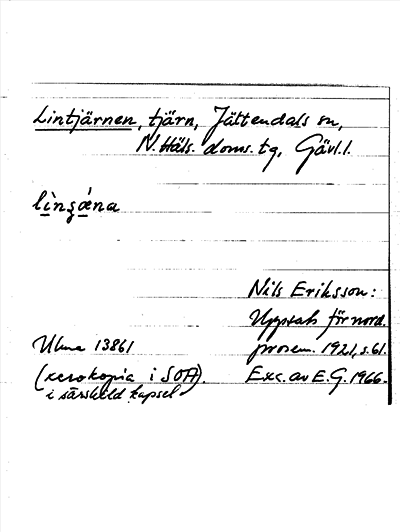 Lintjärnen, tjärn, Jättendals sn,
N. Häls. doms. tg, Gävl.l.
lìnʒǽna
Nils Eriksson:
Uppsats för nord.
Ulma 13861 prosem. 1921, s. 61.
(xerokopia i SOA). Exc. av E.G. 1966.
i särskild kapsel